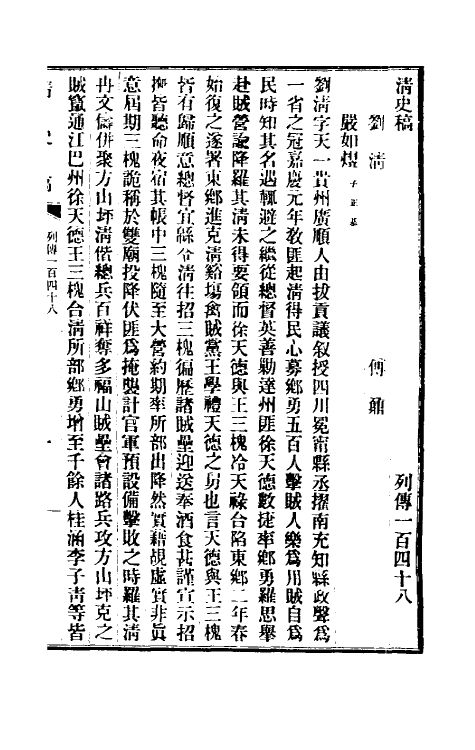 清史稿
列傳一百四十八
劉清
傅鼐
嚴如熤 子正基
劉清字天一貴州廣順人由拔貢議叙授四川冕甯縣丞擢南充知縣政聲爲
一省之冠嘉慶元年敎匪起清得民心募鄉勇五百人擊賊人樂爲用賊自爲
民時知其名遇輒避之繼從總督英善勦達州匪徐天德數捷率鄉勇羅思舉
赴賊營諭降羅其清未得要領而徐天德與王三槐冷天祿合陷東鄉二年春
始復之遂署東鄉進克清谿場禽賊黨王學禮天德之舅也言天德與王三槐
皆有歸順意總督宜緜令清往招三槐徧歷諸賊壘迎送奉酒食甚謹宣示招
撫皆聽命夜宿其帳中三槐隨至大營約期率所部出降然實藉覘虛實非眞
意屆期三槐詭稱於雙廟投降伏匪爲掩襲計官軍預設備擊敗之時羅其清
冉文儔併聚方山坪清偕總兵百祥奪多福山賊壘會諸路兵攻方山坪克之
賊竄通江巴州徐天德王三槐合清所部鄉勇增至千餘人桂涵李子青等皆
清史稿
列傳一百四十八
一